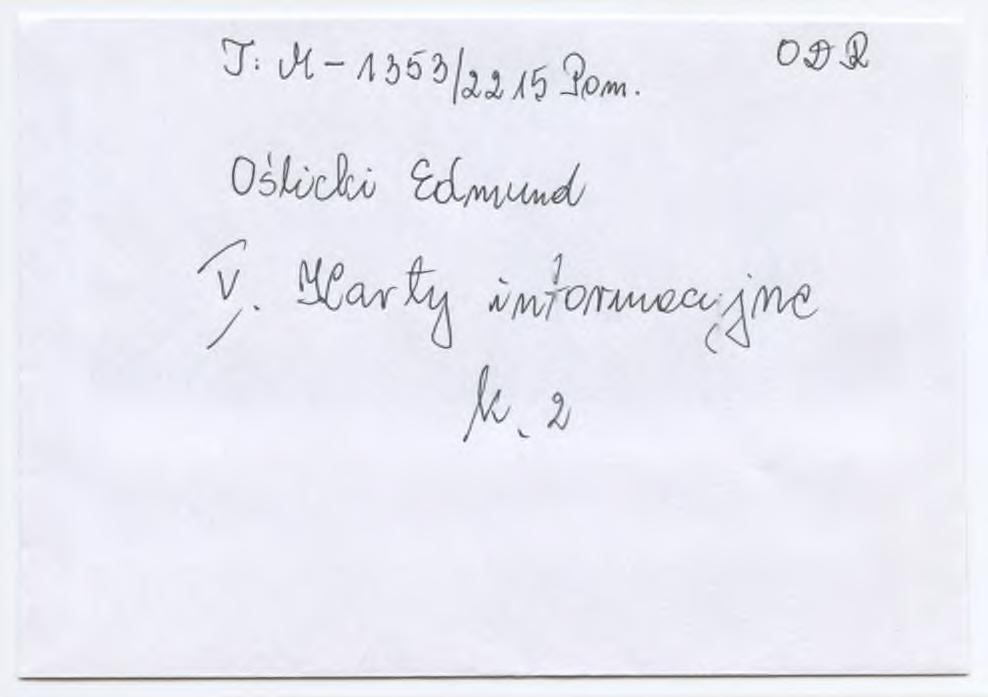 T: M-1353/2215 Pom. ODR
Oślicki Edmund
V. Karty informacyjne
k. 2